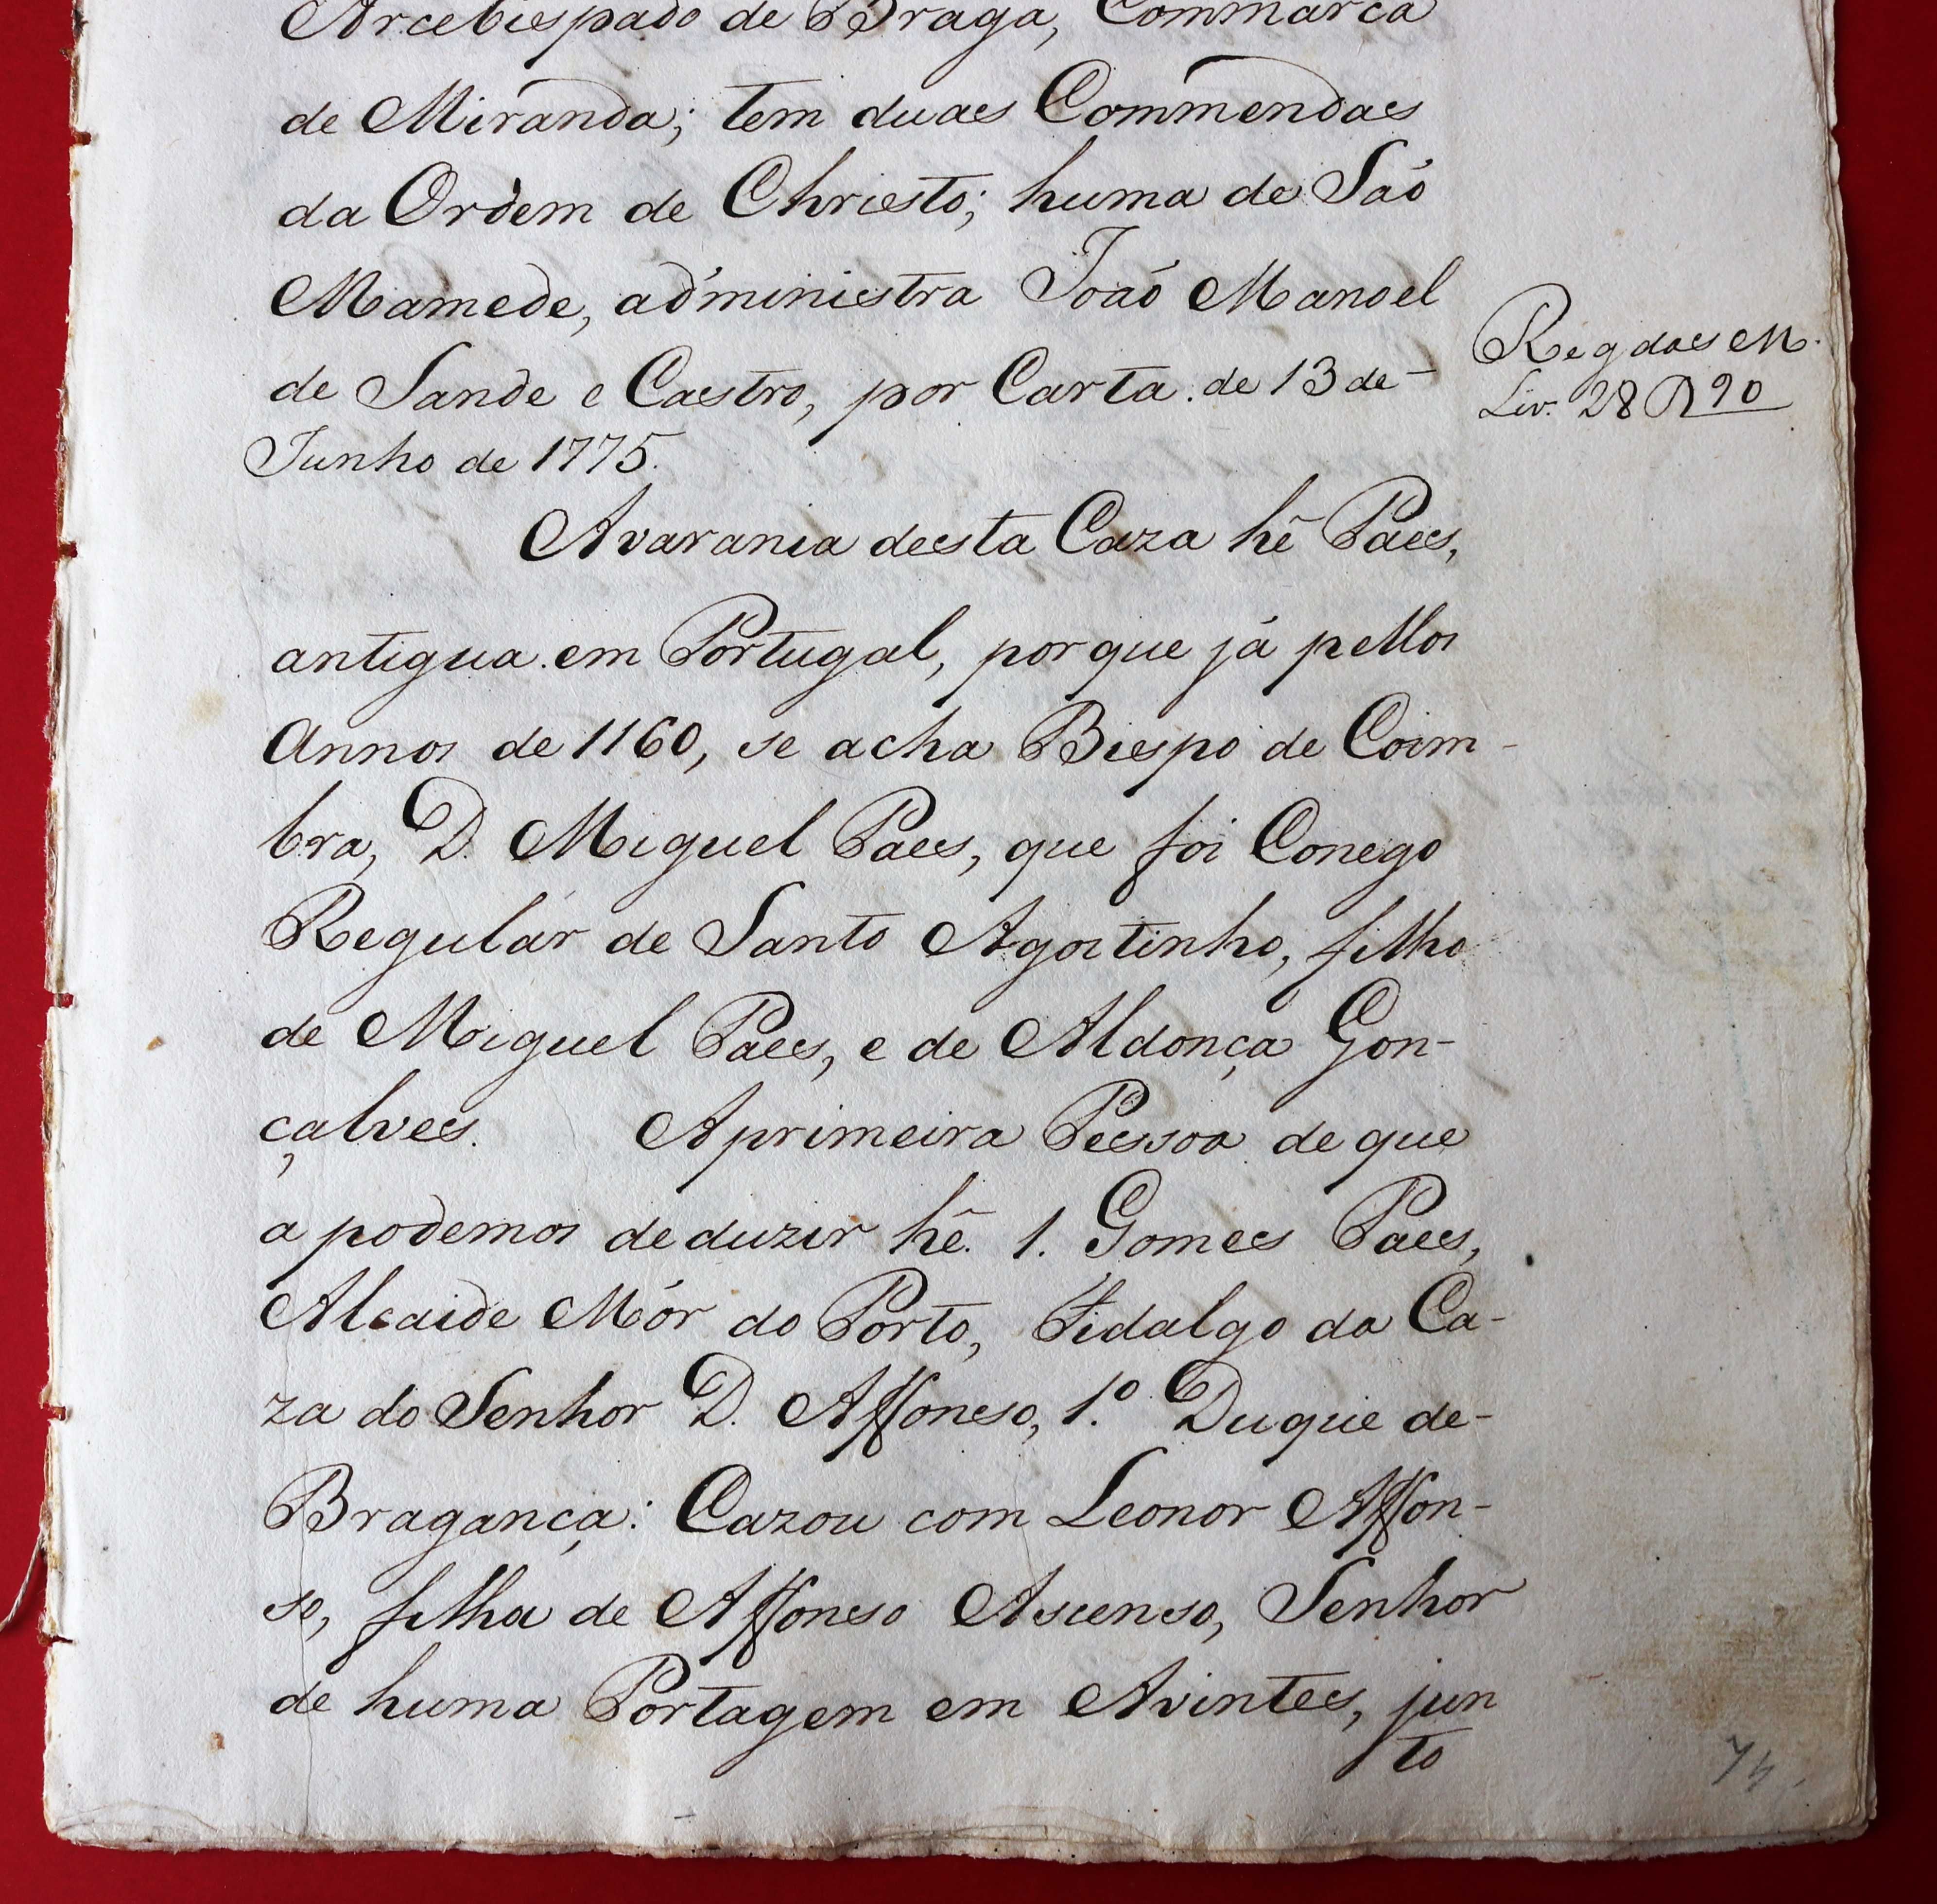 Arcebispado de Braga, Commarca
de Miranda; tem duas Commendas
da Ordem de Christo; huma de Saó
Mamede, administra Joaó Manoel
de Sande e Castro, por Carta de 13 de-
Junho de 1775.
Reg das M.
Liv. 28 90
Avarania desta Caza hé Paes,
antigua em Portugal, porque já pellos
Annos de 1160, se acha Bispo de Coim-
bra, D. Miguel Paes, que foi Conego
Regulár de Santo Agostinho, filho
de Miguel Paes, e de Aldonça Gon-
çalves. Aprimeira Pessoa de que
a podemos deduzir hé. 1. Gomes Paes,
Alcaide Mór do Porto, Fidalgo da Ca-
za do Senhor D. Affonso, 1.º Duque de-
Bragança: Cazou com Leonor Affon-
so, filha de Affonso Ascenso, Senhor
de huma Portagem em Avintes, jun
to